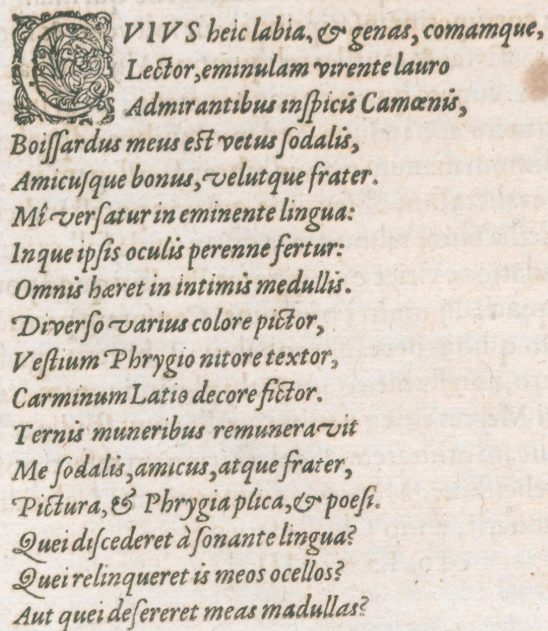 CVIVS heic labia, & genas, comamque,
Lector, eminulam virente lauro
Admirantibus inſpicis Camœnis,
Boiſſardus meus eſt vetus ſodalis,
Amicuſque bonus, velutque frater.
Mî verſatur in eminente lingua:
Inque ipſis oculis perenne fertur:
Omnis hæret in intimis medullis.
Diverſo varius colore pictor,
Veſtium Phrygio nitore textor,
Carminum Latio decore fictor.
Ternis muneribus remuneravit
Me ſodalis, amicus, atque frater,
Pictura, & Phrygia plica, & poeſi.
Quei diſcederet à ſonante lingua?
Quei relinqueret is meos ocellos?
Aut quei deſereret meas madullas?